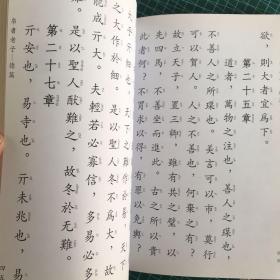 欲，則大者宜爲下。
第二十五章
道者，萬物之注也，善人之琛也，
不善人之所琛也。美言可以市，莫行
可以賀人。人之不善也，何棄之有？
故立天子，置三卿，雖有共之璧，以
先四馬，不善坐而進此。古之所以貴
此者何？不胃求以得，有罪以免與？
之大作於細。是以聖人冬不爲大，故
能成亓大。夫輕若必寡信，多易必多
難。是以聖人猷難之，故冬於无難。
第二十七章
亓安也，易寺也。亓未兆也，易
帛書老子 德篇